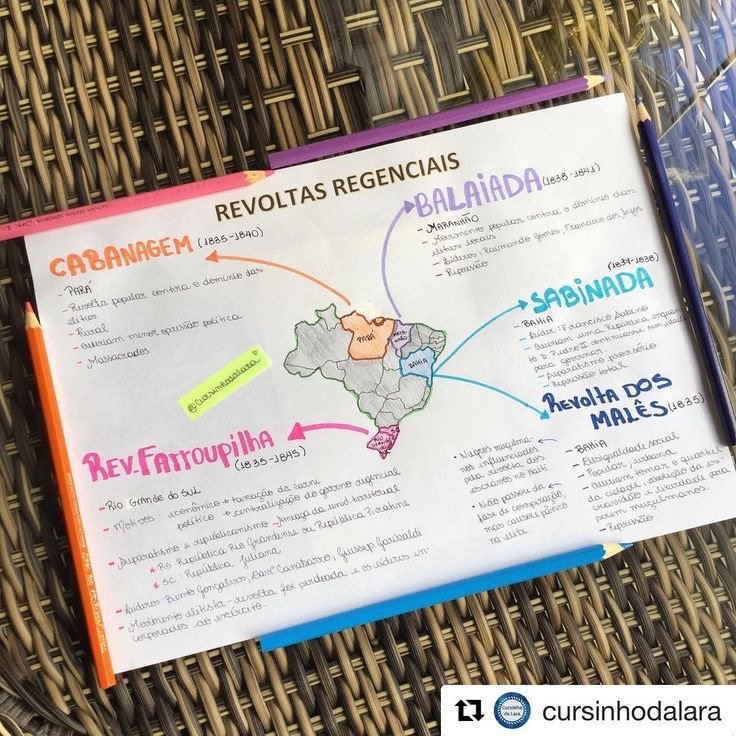 REVOLTAS REGENCIAIS
CABANAGEM (1835-1840)
- PARÁ
- Revolta popular contra o domínio das
elites
- Rural
- Queriam menor opressão política
- Massacrados
BALAIADA (1838-1841)
- MARANHÃO
- Movimento popular contra o domínio das
elites locais
- Líderes: Raimundo Gomes, Francisco dos Anjos
- Repressão
SABINADA (1837-1838)
- BAHIA
- Líder: Francisco Sabino
- Queriam uma República enquan
to D. Pedro II continuasse sem idade
para governar.
- Separatismo provisório
- Repressão total
PARÁ
MARA
NHÃO
BAHIA
RIO
GRANDE
DO SUL
SC
@cursinhodalara
REVOLTA DOS
MALÊS (1835)
- BAHIA
- Desigualdade social
- Popular, urbana
- Queriam tomar o quartel
da cidade, abolição da es
cravidão e liberdade para
serem muçulmanos.
- Repressão
• Negros muçulma-
nos influenciados
pela revolta dos
escravos no Haiti
• Não passou da
fase de conspiração,
mas causou pânico
na elite
REV. FARROUPILHA
(1835-1845)
- RIO GRANDE DO SUL
- Motivos: econômico → taxação da carne
político → centralização do governo regencial
- Separatismo e republicanismo - Ameaça da unid. territorial
* RS: República Rio Grandense ou República Piratini
* SC: República Juliana
- Líderes: Bento Gonçalves, Davi Canabarro, Giusepp Garibaldi
- Movimento elitista - revolta foi perdoada e os líderes in-
corporados ao exército.
Cursinho
da Lara
cursinhodalara